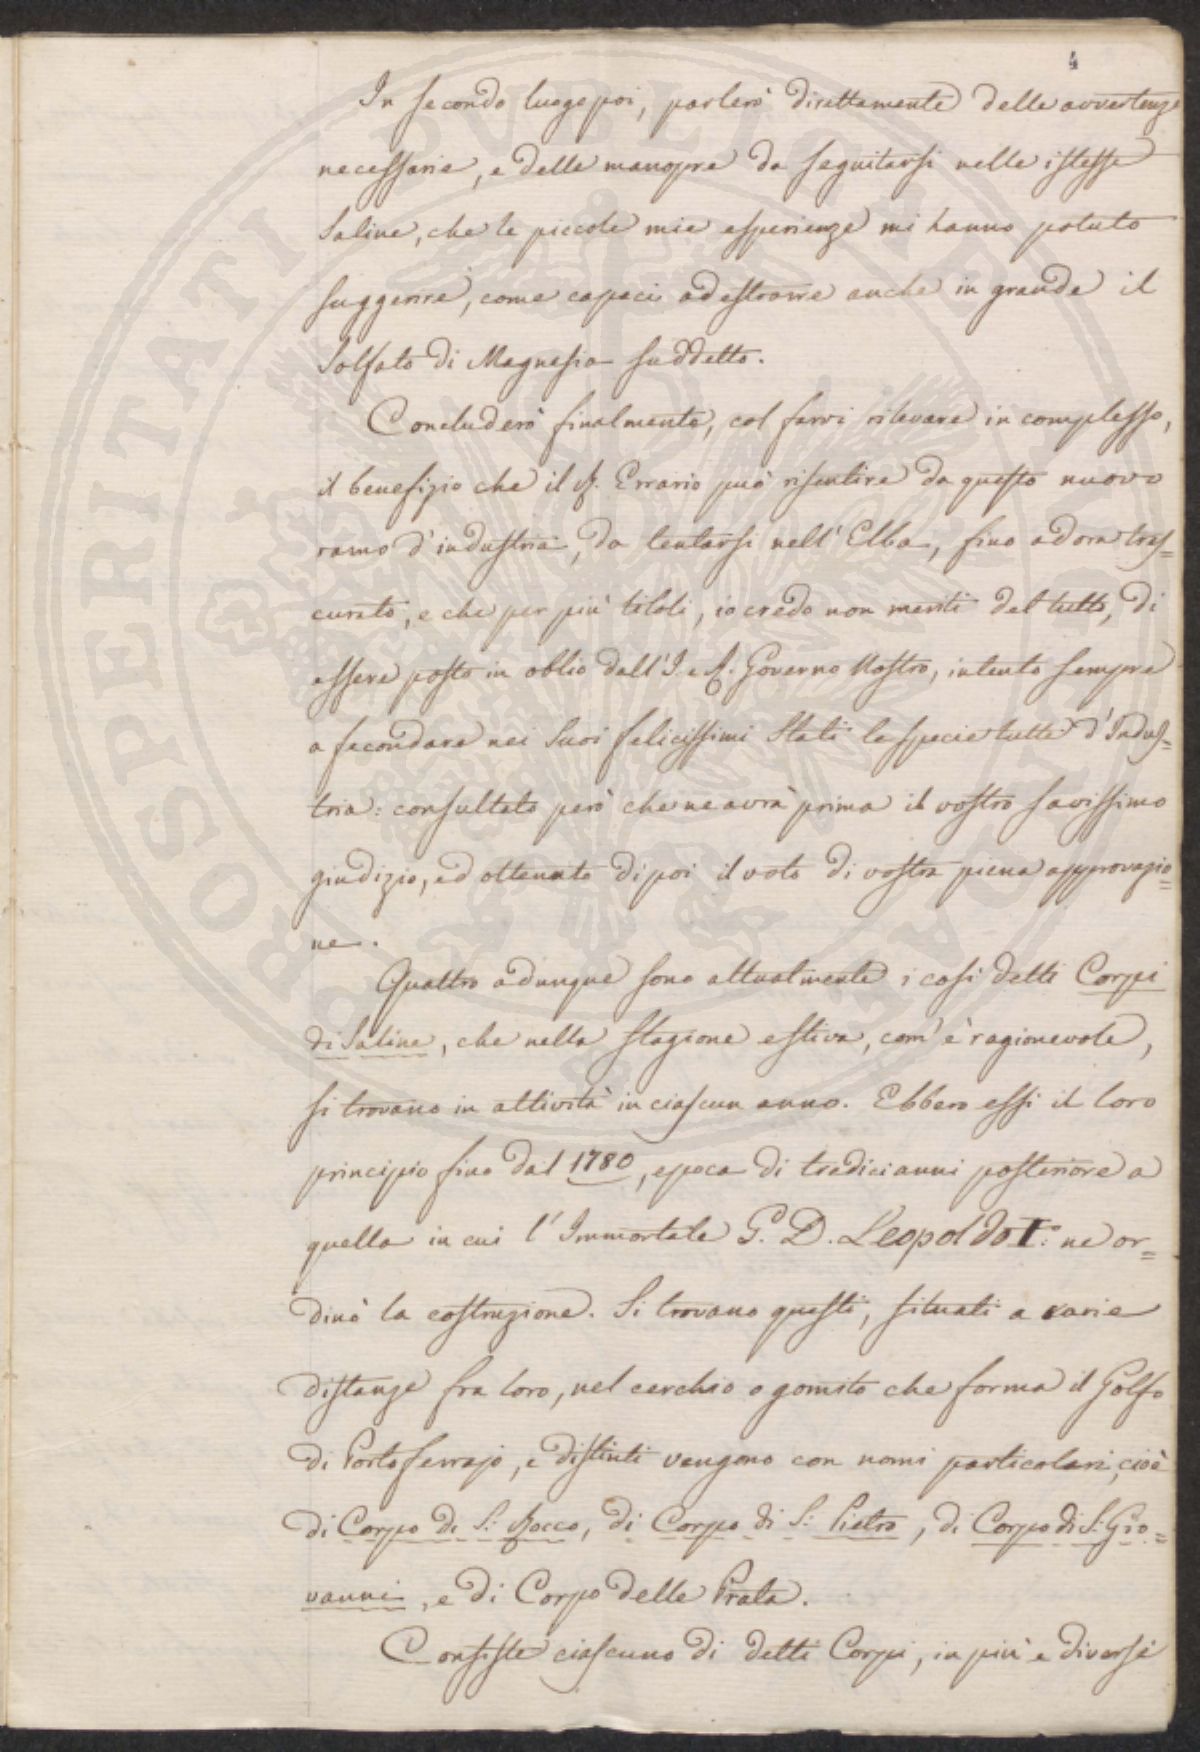 4
In secondo luogo poi, parlerò direttamente delle avvertenze
necessarie, e delle manopre da seguitarsi nelle istesse
Saline, che le piccole mie esperienze mi hanno potuto
suggerire, come capaci ad estrarre anche in grande il
Solfato di Magnesia suddetto.
Concluderò finalmente, col farvi rilevare in complesso,
il benefizio che il R. Errario può risentire da questo nuovo
ramo d'industria, da tentarsi nell'Elba, fino ad ora tras=
curato, e che per più titoli, io credo non meriti del tutto, di
essere posto in oblio dall'I. e R. Governo Nostro, intento sempre
a secondare nei Suoi felicissimi Stati le specie tutte d'Indus=
tria: consultato però che ne avrà prima il vostro savissimo
giudizio, ed ottenuto di poi il voto di vostra piena approvazio=
ne.
Quattro adunque sono attualmente i così detti Corpi
di Saline, che nella stagione estiva, com'è ragionevole,
si trovano in attività in ciascun anno. Ebbero essi il loro
principio fino dal 1780, epoca di tredici anni posteriore a
quella in cui l'Immortale G. D. Leopoldo I.° ne or=
dinò la costruzione. Si trovano questi, situati a varie
distanze fra loro, nel cerchio o gomito che forma il Golfo
di Portoferrajo, e distinti vengono con nomi particolari, cioè
di Corpo di S: Rocco, di Corpo di S: Pietro, di Corpo di S: Gio=
vanni, e di Corpo delle Prata.
Consiste ciascuno di detti Corpi, in più e diversi
PROSPERITATI PUBLICAE AUGENDAE